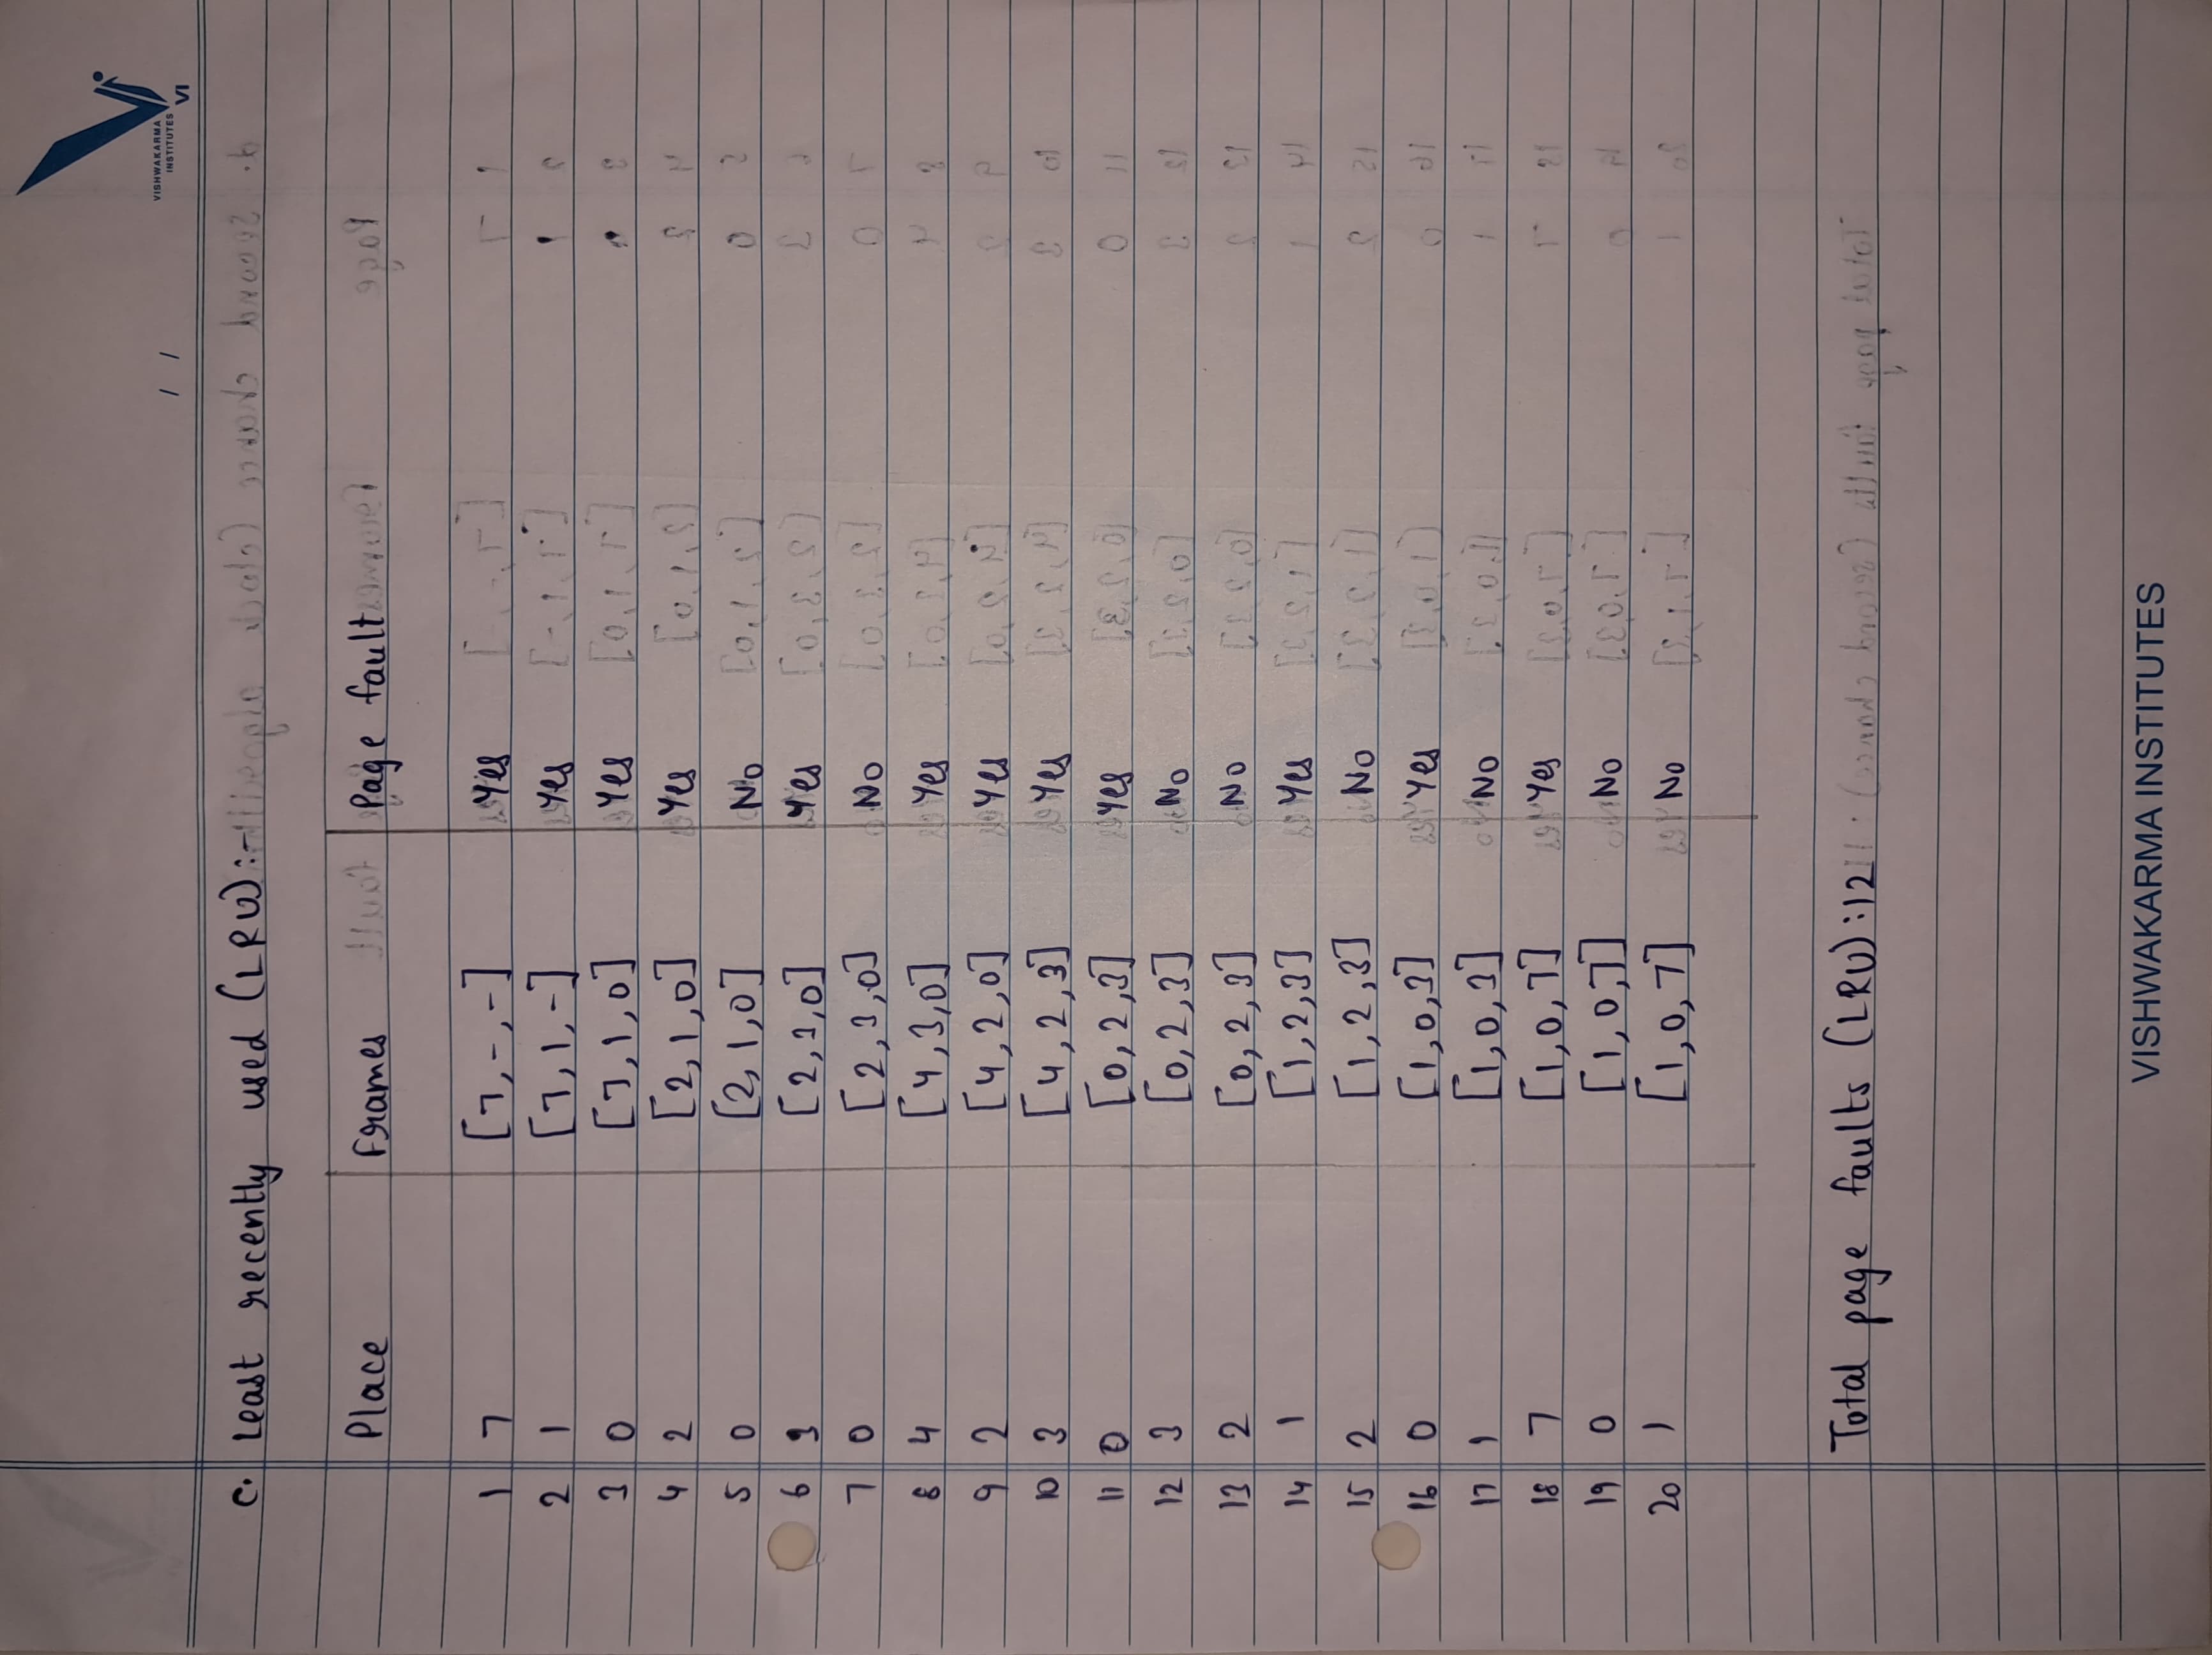 VISHWAKARMA
INSTITUTES
VI
/ /
c. Least recently used (LRU):-
Place Frames Page fault
1 7 [7,-,-] Yes
2 1 [7,1,-] Yes
3 0 [7,1,0] Yes
4 2 [2,1,0] Yes
5 0 [2,1,0] No
6 3 [2,3,0] Yes
7 0 [2,3,0] No
8 4 [4,3,0] Yes
9 2 [4,2,0] Yes
10 3 [4,2,3] Yes
11 0 [0,2,3] Yes
12 3 [0,2,3] No
13 2 [0,2,3] No
14 1 [1,2,3] Yes
15 2 [1,2,3] No
16 0 [1,0,3] Yes
17 1 [1,0,3] No
18 7 [1,0,7] Yes
19 0 [1,0,7] No
20 1 [1,0,7] No
Total page faults (LRU):12
VISHWAKARMA INSTITUTES